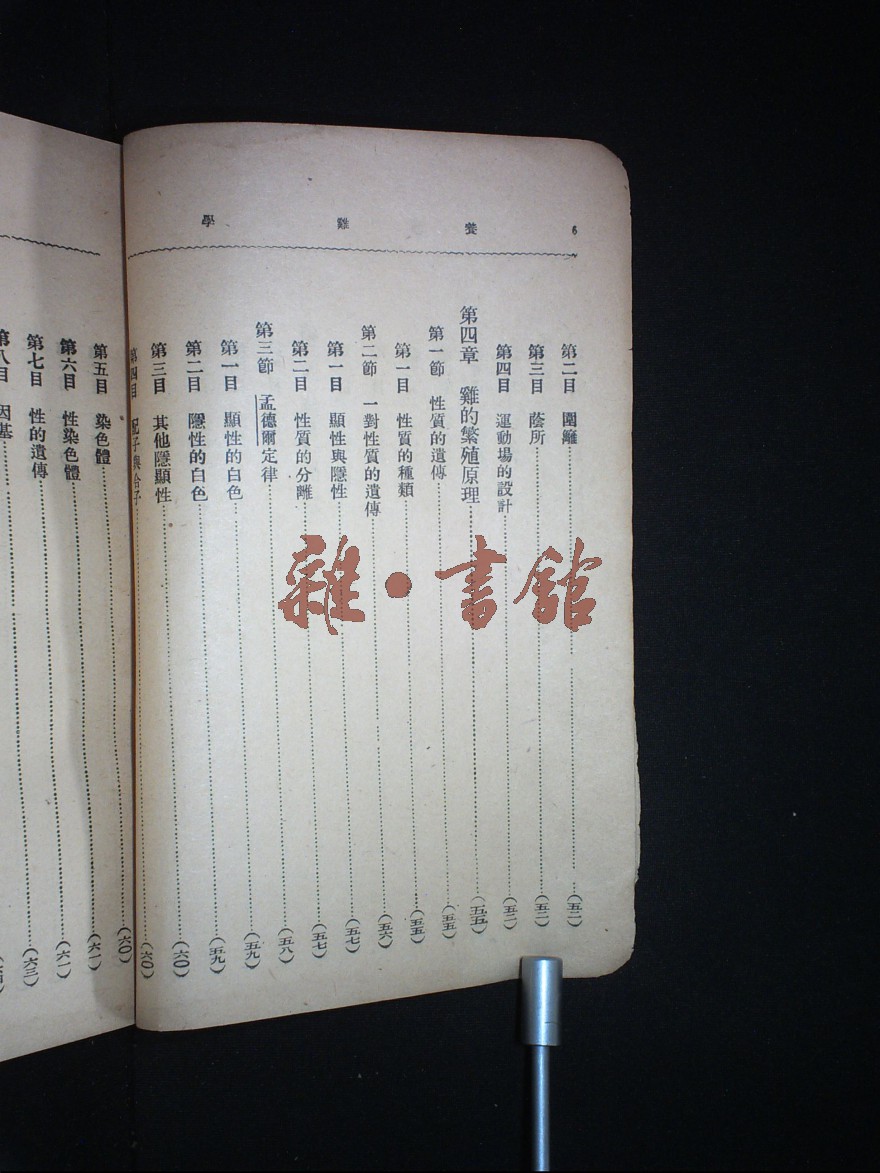 6 養雞學
第二目 圍籬……(五二)
第三目 蔭所……(五二)
第四目 運動場的設計……(五二)
第四章 雞的繁殖原理……(五五)
第一節 性質的遺傳……(五五)
第一目 性質的種類……(五五)
第二節 一對性質的遺傳……(五六)
第一目 顯性與隱性……(五七)
第二目 性質的分離……(五七)
第三節 孟德爾定律……(五八)
第一目 顯性的白色……(五九)
第二目 隱性的白色……(五九)
第三目 其他隱顯性……(六〇)
第四目 配子與合子……(六〇)
第五目 染色體……(六〇)
第六目 性染色體……(六一)
第七目 性的遺傳……(六一)
第八目 因基……(六三)
雜·書館